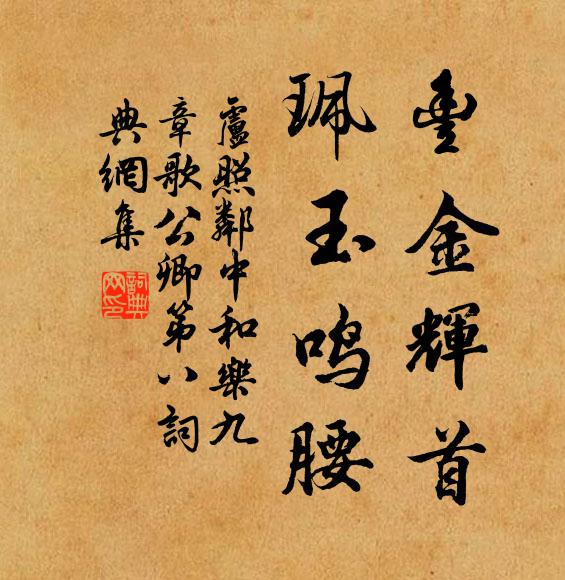 豐金輝首
珮玉鸣腰
盧照鄰中和樂九
章歌公卿第八詞
典網集
詞典
网印